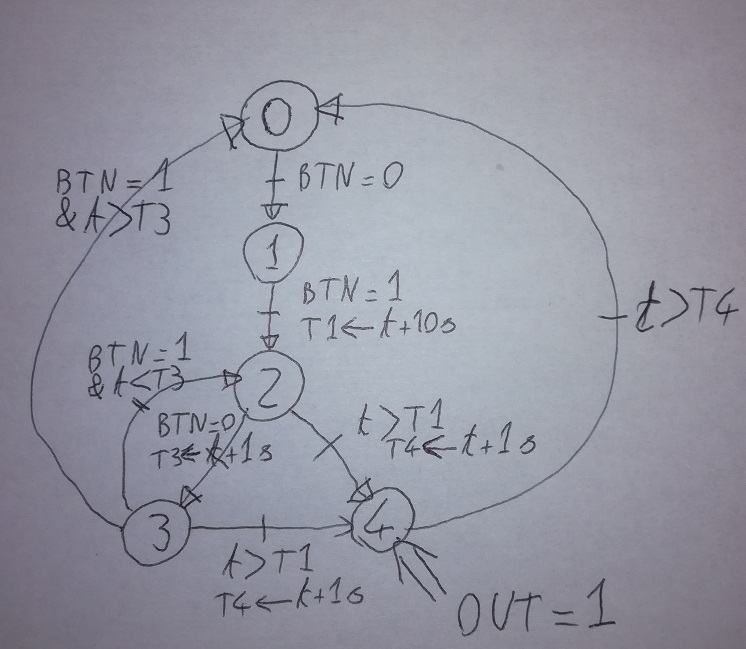 0
BTN = 0
BTN = 1
& t > T3
1
BTN = 1
T1 ← t+10s
t > T4
BTN = 1
& t < T3
2
BTN=0
T3 ← t+1s
t > T1
T4 ← t+1s
3
4
t > T1
T4 ← t+1s
OUT = 1